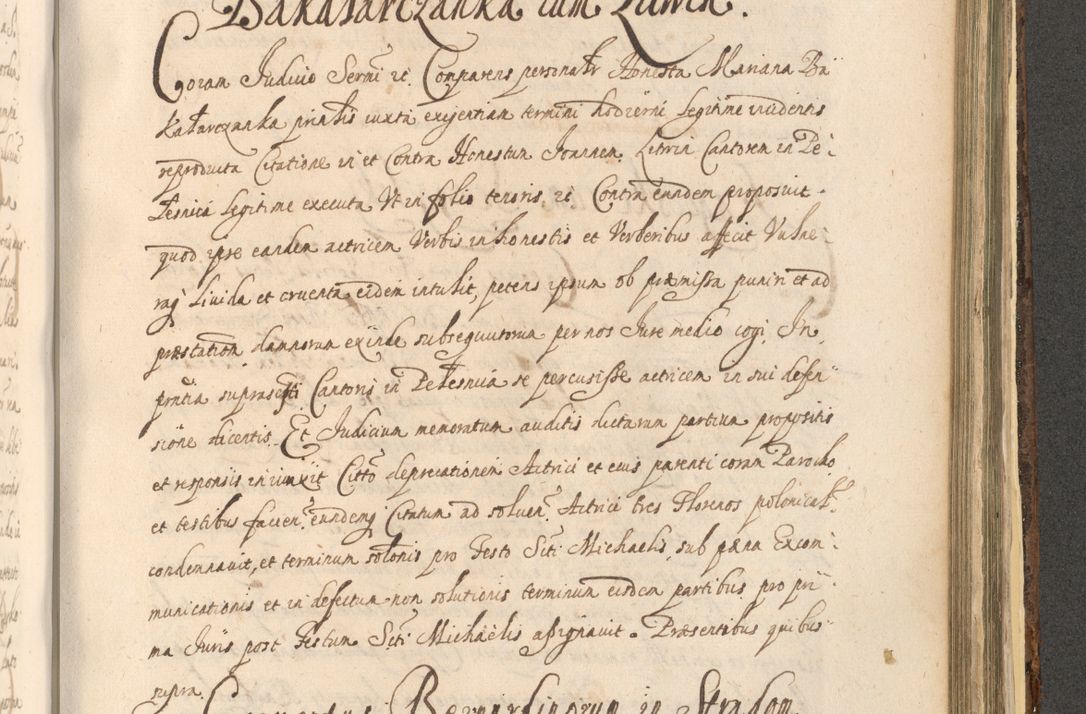 Bakałarczanka cum Litwin.
Coram Judicio Sermi etc Comparens personalr Honesta Mariana Ba-
kałarczanka prinlis iuxta exigentiam termini hodierni legitime incidentis
reproducta Citatione in et Contra Honestum Joannem Litwin Cantorem in Pe-
lesnica legitime executa Ut in folio tenoris etc Contra eundem proposuit
quod ipse eandem actricem Verbis inhonestis et Verberibus affecit Vulne-
raq Livida et cruenta eidem intulit, petens ipsum ob præmissa puniri et ad
præstationem damnorum exinde subsequutorum per nos Jure medio cogi. In
pntia suprascpti Cantoris in Pelesnica se percusisse actricem in sui defen-
sione dicentis. Et Judicium memoratum auditis dictarum partium propositis
et responsis iniunxit Citto deprecationem Actrici et eius parenti coram Parocho
et testibus facien. eundemq Citatum ad solven. Actrici tres Florenos polonical.
condemnavit, et terminum solonis pro Festo Sti Michaelis, sub pæna Excom-
municationis et in defectum non solutionis terminum eisdem partibus pro pri-
ma Juris post Festum Sti Michaelis assignavit. Præsentibus quibus
supra.
Bernardinorum in Stradom